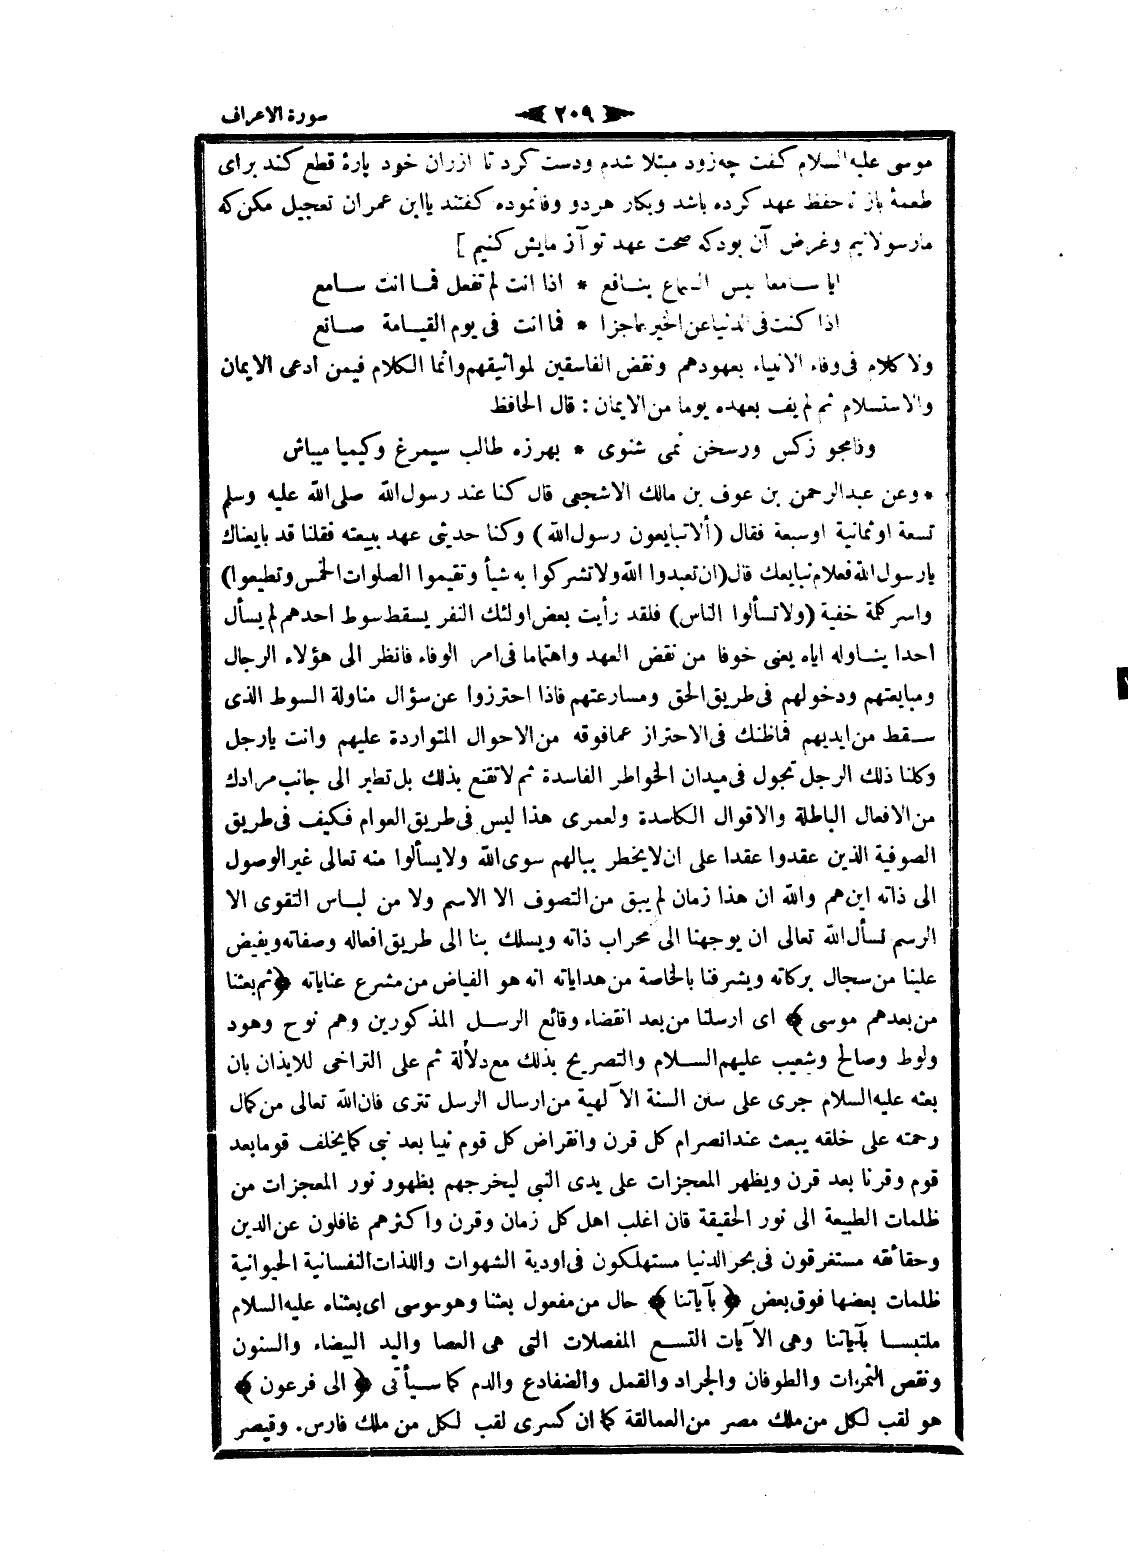 سورة الاعراف ﴿ ٢٠٩ ﴾
موسى عليه السلام كفت چه زود مبتلا شدم ودست كرد تا ازران خود پارۀ قطع كند براى
طعمۀ باز تا حفظ عهد كرده باشد وبكار هردو وفا نموده كفتند يا ابن عمران تعجيل مكن كه
مارسولانيم وغرض آن بودكه صحت عهد تو آزمايش كنيم ]
ايا سامعا ليس السماع بنافع * اذا انت لم تفعل فما انت سامع
اذا كنت فى الدنيا عن الخير عاجزا * فما انت فى يوم القيامة صانع
ولا كلام فى وفاء الانبياء بعهودهم ونقض الفاسقين لمواثيقهم وانما الكلام فيمن ادعى الايمان
والاستسلام ثم لم يف بعهده يوما من الايمان : قال الحافظ
وفا مجو زكس ورسخن نمى شنوى * بهرزه طالب سيمرغ وكيميا ميباش
* وعن عبدالرحمن بن عوف بن مالك الاشجعى قال كنا عند رسول الله صلى الله عليه وسلم
تسعة او ثمانية او سبعة فقال (ألا تبايعون رسول الله) وكنا حديثى عهد ببيعته فقلنا قد بايعناك
يارسول الله فعلام نبايعك قال (ان تعبدوا الله ولا تشركوا به شيأ وتقيموا الصلوات الخمس وتطيعوا)
واسر كلمة خفية (ولا تسألوا الناس) فلقد رأيت بعض اولئك النفر يسقط سوط احدهم لم يسأل
احدا يناوله اياه يعنى خوفا من نقض العهد واهتماما فى امر الوفاء فانظر الى هؤلاء الرجال
ومبايعتهم ودخولهم فى طريق الحق ومسارعتهم فاذا احترزوا عن سؤال مناولة السوط الذى
سقط من ايديهم فماظنك فى الاحتراز عمافوقه من الاحوال المتواردة عليهم وانت يارجل
وكلنا ذلك الرجل تجول فى ميدان الخواطر الفاسدة ثم لا تقنع بذلك بل تطير الى جانب مرادك
من الافعال الباطلة والاقوال الكاسدة ولعمرى هذا ليس فى طريق العوام فكيف فى طريق
الصوفية الذين عقدوا عقدا على ان لا يخطر ببالهم سوى الله ولا يسألوا منه تعالى غير الوصول
الى ذاته اين هم والله ان هذا زمان لم يبق من التصوف الا الاسم ولا من لباس التقوى الا
الرسم نسأل الله تعالى ان يوجهنا الى محراب ذاته ويسلك بنا الى طريق افعاله وصفاته ويفيض
علينا من سجال بركاته ويشرفنا بالخاصة من هداياته انه هو الفياض من مشرع عناياته ﴿ ثم بعثنا
من بعدهم موسى ﴾ اى ارسلنا من بعد انقضاء وقائع الرسل المذكورين وهم نوح وهود
ولوط وصالح وشعيب عليهم السلام والتصريح بذلك مع دلالة ثم على التراخى للايذان بان
بعثه عليه السلام جرى على سنن السنة الآلهية من ارسال الرسل تترى فان الله تعالى من كمال
رحمته على خلقه يبعث عند انصرام كل قرن وانقراض كل قوم نبيا بعد نبى كما يخلف قوما بعد
قوم وقرنا بعد قرن ويظهر المعجزات على يدى النبى ليخرجهم بظهور نور المعجزات من
ظلمات الطبيعة الى نور الحقيقة فان اغلب اهل كل زمان وقرن واكثرهم غافلون عن الدين
وحقائقه مستغرقون فى بحر الدنيا مستهلكون فى اودية الشهوات واللذات النفسانية الحيوانية
ظلمات بعضها فوق بعض ﴿ بآياتنا ﴾ حال من مفعول بعثنا وهو موسى اى بعثناه عليه السلام
ملتبسا بآياتنا وهى الآيات التسع المفصلات التى هى العصا واليد البيضاء والسنون
ونقص الثمرات والطوفان والجراد والقمل والضفادع والدم كما سيأتى ﴿ الى فرعون ﴾
هو لقب لكل من ملك مصر من العمالقة كما ان كسرى لقب لكل من ملك فارس. وقيصر